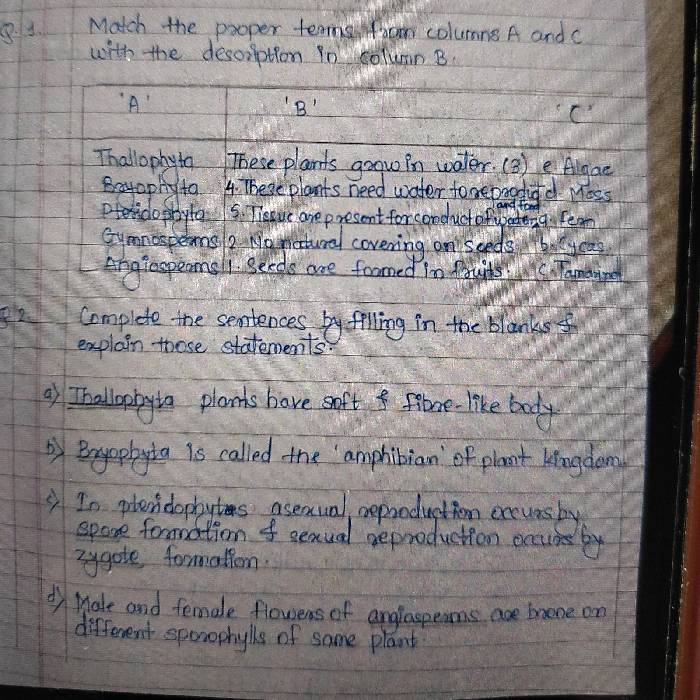 Q.1. Match the proper terms from columns A and C
with the description in column B.
'A' 'B' 'C'
Thallophyta These plants grow in water. (3) e Algae
Bryophyta 4. These plants need water to reproduce d Moss
and food
Pteridophyta 5. Tissue are present for conduct of water a. fern
Gymnosperms 2. No natural covering on seeds b. Cycas
Angiosperms 1. Seeds are formed in fruits. c. Tamarind
Q.2. Complete the sentences by filling in the blanks &
explain those statements:
a) Thallophyta plants have soft & fibre-like body.
b) Bryophyta is called the 'amphibian' of plant kingdom.
c) In pteridophytes asexual reproduction occurs by
spore formation & sexual reproduction occurs by
zygote formation.
d) Male and female flowers of angiosperms are borne on
different sporophylls of same plant